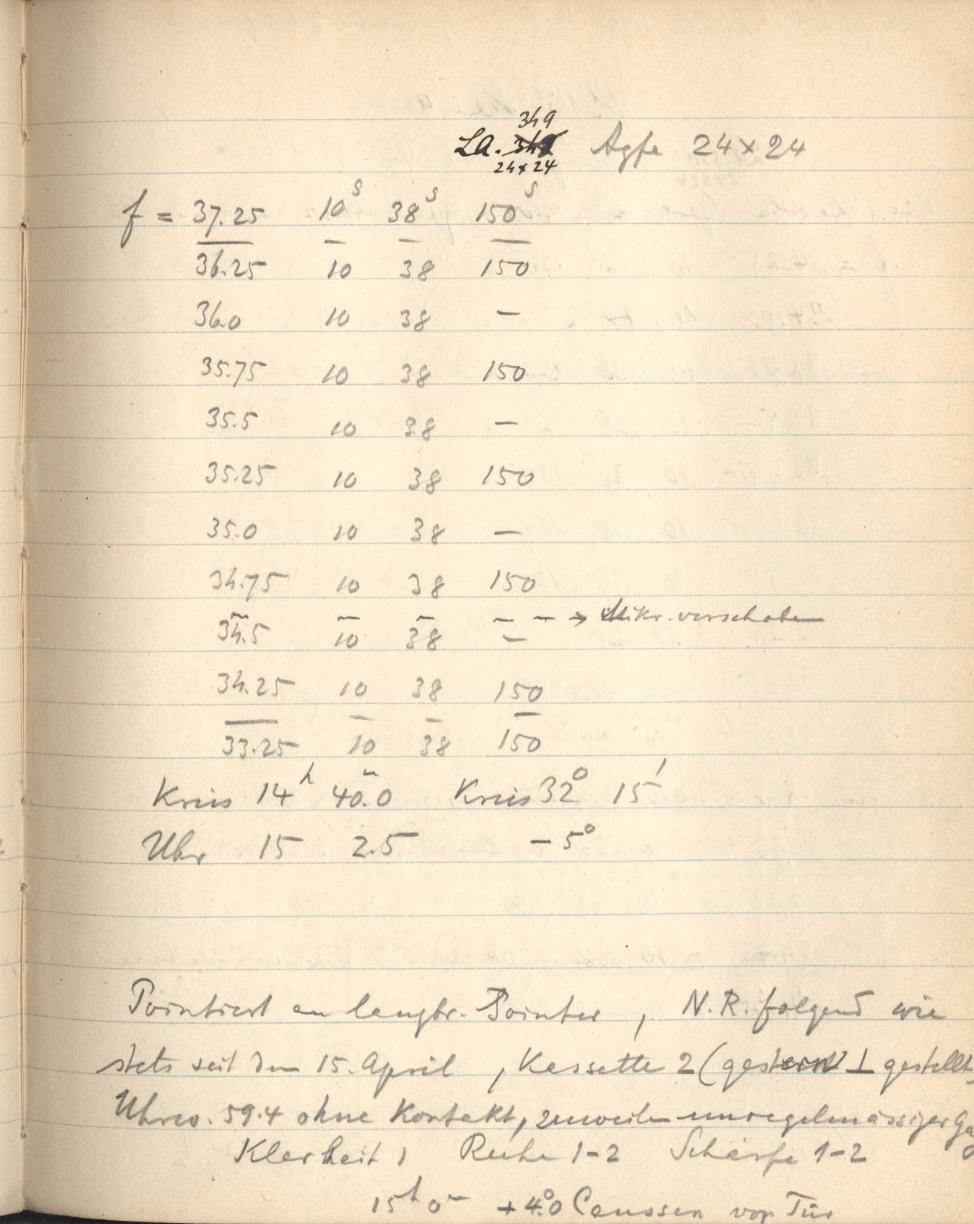 349
LA. 348 Agfa 24x24
24x24
f = 37.25 10s 38s 150s
36.25 10 38 150
36.0 10 38 –
35.75 10 38 150
35.5 10 38 –
35.25 10 38 150
35.0 10 38 –
34.75 10 38 150
– – → Mikr. verschoben
34.5 10 38 –
34.25 10 38 150
33.25 10 38 150
Kreis 14h 40m.0 Kreis 32° 15'
Uhr 15 2.5 – 5°
Pointiert am langbr. Pointer, N.R. folgend wie
stets seit dem 15. April, Kassette 2 (gestern ⊥ gestellt
Uhrw. 59.4 ohne Kontakt, zuweilen unregelmässiger Ga
Klarheit 1 Ruhe 1-2 Schärfe 1-2
15h 0m +4°.0 Caussen vor Tür